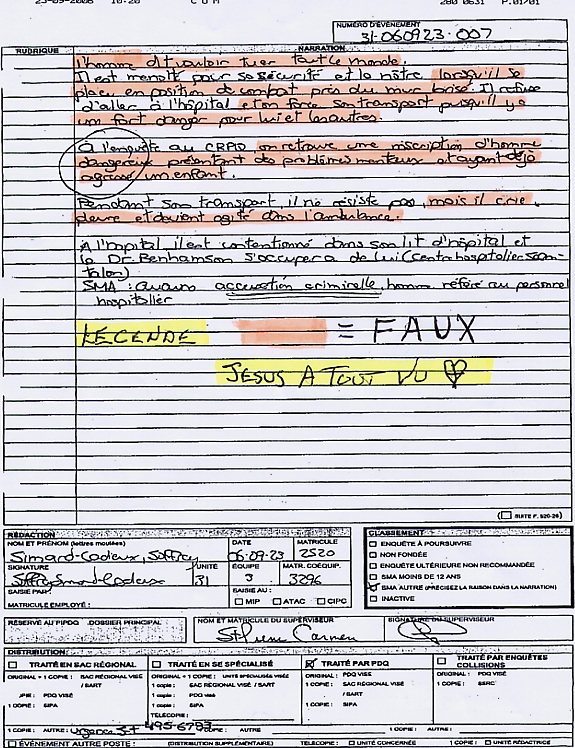 23-09-2006 10:20 C U M 280 0631 P.01/01
NUMÉRO D'ÉVÉNEMENT
31-060923-007
RUBRIQUE NARRATION
l'homme dit vouloir tuer tout le monde.
Il est menotté pour sa sécurité et la nôtre lorsqu'il se
place en position de combat près du mur brisé. Il refuse
d'aller à l'hôpital et on force son transport puisqu'il y a
un fort danger pour lui et les autres.
À l'enquête au CRPID on retrouve une inscription d'homme
dangereux présentant des problèmes mentaux et ayant déjà
agressé un enfant.
Pendant son transport, il ne résiste pas, mais il crie,
pleure et devient agité dans l'ambulance.
À l'hôpital, il est contentionné dans son lit d'hôpital et
le Dr. Benhamson s'occupera de lui (centre hospitalier
SMA : Aucune accusation criminelle, homme référé au personnel
hospitalier
LEGENDE = FAUX
JESUS A TOUT VU
(☐ SUITE P. 520-26)
RÉDACTION
NOM ET PRÉNOM (lettres moulées) DATE MATRICULE
Simard-Cadieux, 06-09-23 2520
SIGNATURE UNITÉ ÉQUIPE MATR. COÉQUIP.
31 3 3296
SAISIE PAR: SAISIE AU :
MATRICULE EMPLOYÉ : ☐ MIP ☐ ATAC ☐ CIPC
CLASSEMENT
☐ ENQUÊTE À POURSUIVRE
☐ NON FONDÉE
☐ ENQUÊTE ULTÉRIEURE NON RECOMMANDÉE
☐ SMA MOINS DE 12 ANS
☑ SMA AUTRE (PRÉCISEZ LA RAISON DANS LA NARRATION)
☐ INACTIVE
RÉSERVÉ AU PIPDQ DOSSIER PRINCIPAL
NOM ET MATRICULE DU SUPERVISEUR SIGNATURE DU SUPERVISEUR
DISTRIBUTION:
☐ TRAITÉ EN SAC RÉGIONAL ☐ TRAITÉ EN SE SPÉCIALISÉ ☒ TRAITÉ PAR PDQ ☐ TRAITÉ PAR ENQUÊTES COLLISIONS
ORIGINAL + 1 COPIE : SAC RÉGIONAL VISÉ / SART
1 COPIE : PDQ VISÉ
1 COPIE : SIPA
1 COPIE : AUTRE : urgence
ORIGINAL + 1 COPIE : UNITÉ SPÉCIALISÉE VISÉE
1 copie : SAC RÉGIONAL VISÉ / SART
1 copie : PDQ visé
1 copie : SIPA
TÉLÉCOPIE :
495-6797
AUTRE
ORIGINAL : PDQ VISÉ
1 COPIE : SAC RÉGIONAL VISÉ / SART
1 COPIE : SIPA
1 COPIE : AUTRE :
ORIGINAL : PDQ VISÉ
1 COPIE : SSRC
1 COPIE : AUTRE :
☐ ÉVÉNEMENT AUTRE POSTE : (DISTRIBUTION SUPPLÉMENTAIRE) TÉLÉCOPIE : ☐ UNITÉ CONCERNÉE 1 COPIE : ☐ UNITÉ RÉDACTRICE